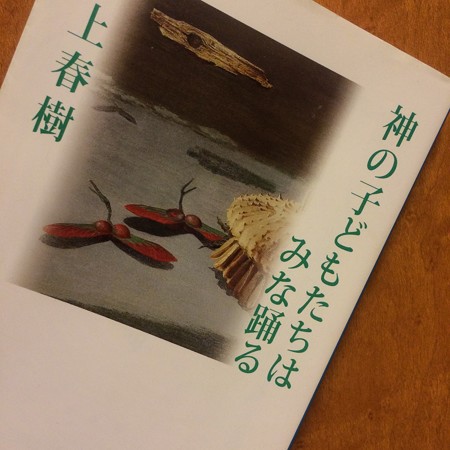 神の子どもたちは
みな踊る
上春樹